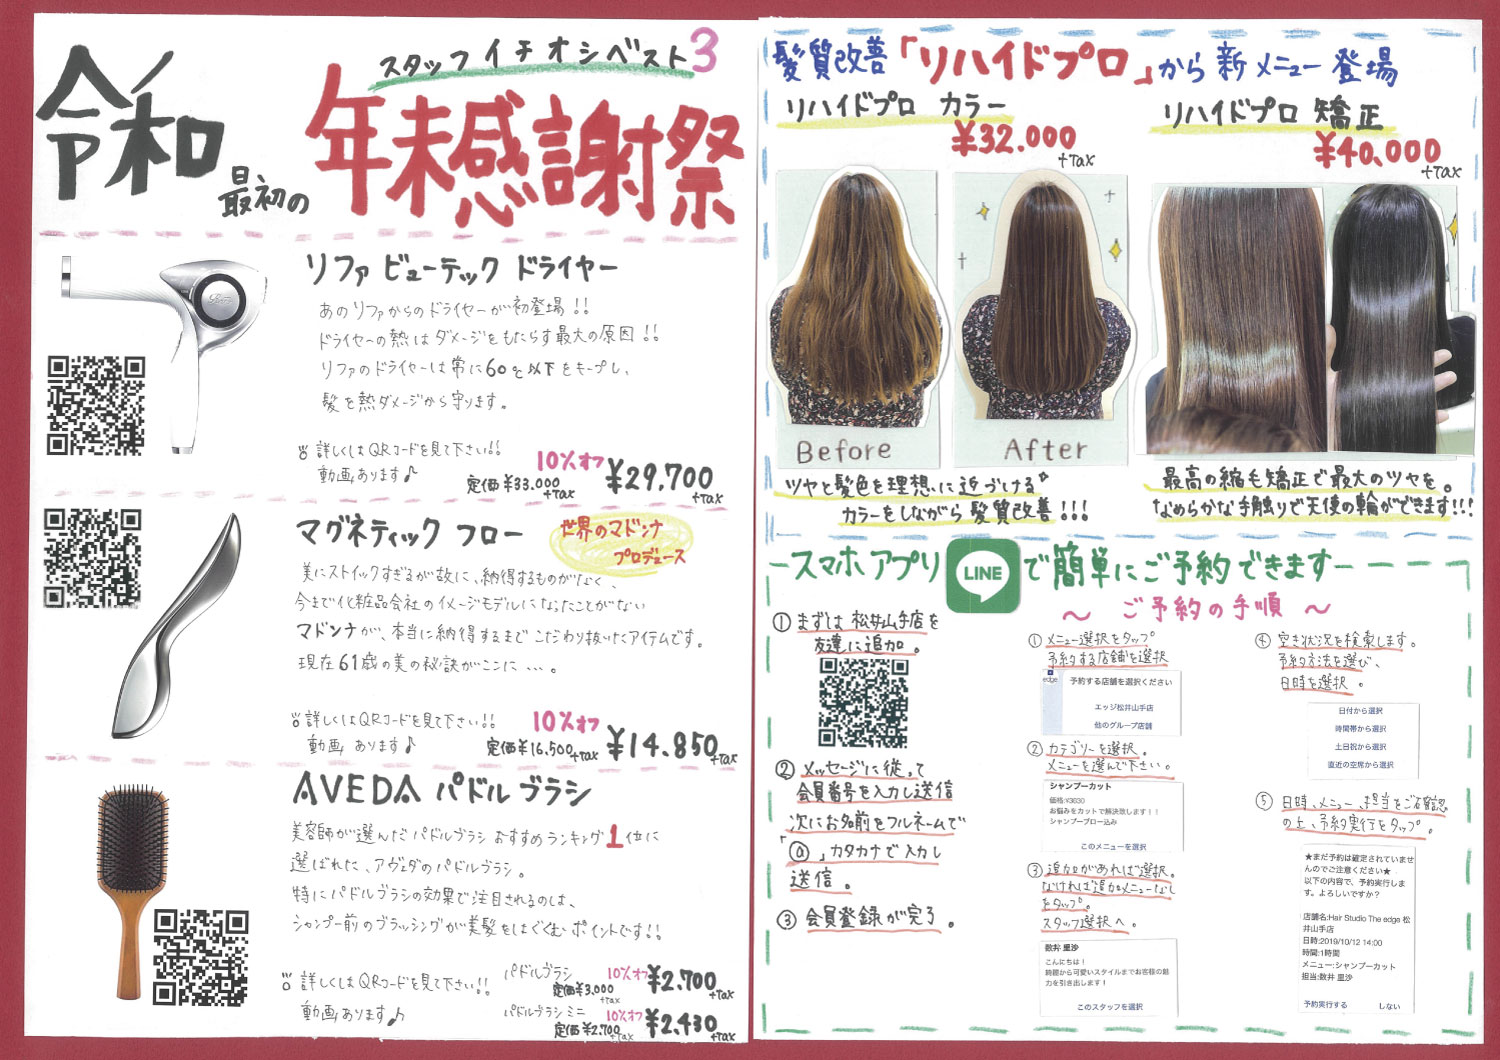 スタッフイチオシベスト3
令和
最初の
年末感謝祭
リファ ビューテック ドライヤー
あのリファからのドライヤーが初登場!!
ドライヤーの熱はダメージをもたらす最大の原因!!
リファのドライヤーは常に60℃以下をキープし、
髪を熱ダメージから守ります。
詳しくはQRコードを見て下さい!!
動画あります♪
10%オフ
定価¥33.000+tax
¥29.700+tax
マグネティック フロー
世界のマドンナ
プロデュース
美にストイックすぎるが故に、納得するものがなく、
今まで化粧品会社のイメージモデルになったことがない
マドンナが、本当に納得するまでこだわり抜いたアイテムです。
現在61歳の美の秘訣がここに…。
詳しくはQRコードを見て下さい!!
動画あります♪
10%オフ
定価¥16.500+tax
¥14.850+tax
AVEDA パドルブラシ
美容師が選んだパドルブラシおすすめランキング1位に
選ばれた、アヴェダのパドルブラシ。
特にパドルブラシの効果で注目されるのは、
シャンプー前のブラッシングが美髪をはぐくむポイントです!!
詳しくはQRコードを見て下さい!!
動画あります♪
パドルブラシ
10%オフ
定価¥3,000+tax
¥2.700+tax
パドルブラシ ミニ
10%オフ
定価¥2.700+tax
¥2.430+tax
髪質改善「リハイドプロ」から新メニュー登場
リハイドプロ カラー
¥32.000+tax
リハイドプロ 矯正
¥40,000+tax
Before
After
ツヤと髪色を理想に近づける
カラーをしながら髪質改善!!!
最高の縮毛矯正で最大のツヤを。
なめらかな手触りで天使の輪ができます!!!
-スマホアプリ LINE で簡単にご予約できます-
① まずは松井山手店を
友達に追加。
② メッセージに従って
会員番号を入力し送信
次にお名前をフルネームで
「@」カタカナで入力し
送信。
③ 会員登録が完了。
～ ご予約の手順 ～
① メニュー選択をタップ
予約する店舗を選択
edge
予約する店舗を選択ください
エッジ松井山手店
他のグループ店舗
② カテゴリーを選択。
メニューを選んで下さい。
シャンプーカット
価格:¥3630
お悩みをカットで解決致します！！
シャンプーブロー込み
このメニューを選択
③ 追加があれば選択。
なければ追加メニューなし
をタップ。
スタッフ選択へ。
数井 里沙
こんにちは！
綺麗から可愛いスタイルまでお客様の魅
力を引き出します！
このスタッフを選択
④ 空き状況を検索します。
予約方法を選び、
日時を選択。
日付から選択
時間帯から選択
土日祝から選択
直近の空席から選択
⑤ 日時、メニュー、担当をご確認
の上、予約実行をタップ。
★まだ予約は確定されていませ
んのでご注意ください★
以下の内容で、予約実行しま
す。よろしいですか？
店舗名:Hair Studio The edge 松
井山手店
日時:2019/10/12 14:00
時間:1時間
メニュー:シャンプーカット
担当:数井 里沙
予約実行する
しない